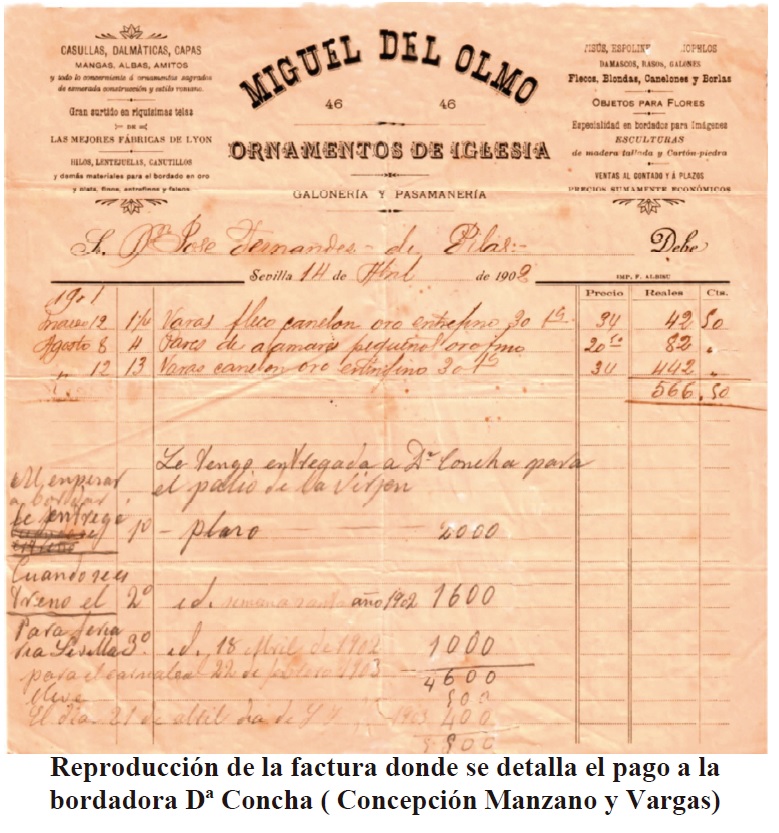 CASULLAS, DALMÁTICAS, CAPAS
MANGAS, ALBAS, AMITOS
y todo lo concerniente á ornamentos sagrados
de esmerada construcción y estilo romano.
Gran surtido en riquísimas telas
DE
LAS MEJORES FÁBRICAS DE LYON
HILOS, LENTEJUELAS, CANUTILLOS
y demás materiales para el bordado en oro
y plata, finos, entrefinos y falsos
MIGUEL DEL OLMO
46 46
ORNAMENTOS DE IGLESIA
GALONERÍA Y PASAMANERÍA
DAMASCOS, RASOS, GALONES
Flecos, Blondas, Canelones y Borlas
OBJETOS PARA FLORES
Especialidad en bordados para imágenes
ESCULTURAS
de madera tallada y Cartón-piedra
VENTAS AL CONTADO Y Á PLAZOS
PRECIOS SUMAMENTE ECONÓMICOS
S. Dn Jose Fernandes de Pilas Debe
Sevilla 14 de Abril de 1902
IMP. F. ALBISU
Precio Reales Cts.
1901
12 1¼ Varas fleco canelon oro entrefino 30 34 42 50
Agosto 8 4 Pares de alamares pequeños oro fino 20 50 82 "
" 12 13 Varas canelon oro entrefino 30 34 442 "
566.50
Le Tengo entregada a Dª Concha para
el palio de la Virjen
Al empezar
a bordar
le entregé 1º - plazo 2000
Cuando se es
treno el 2º id. semana santa año 1902 1600
Para feria
Sevilla 3º id. 18 Abril de 1902 1000
para el carnaval 22 de febrero 1903 4600
500
El día 21 de abril dia de 1903 400